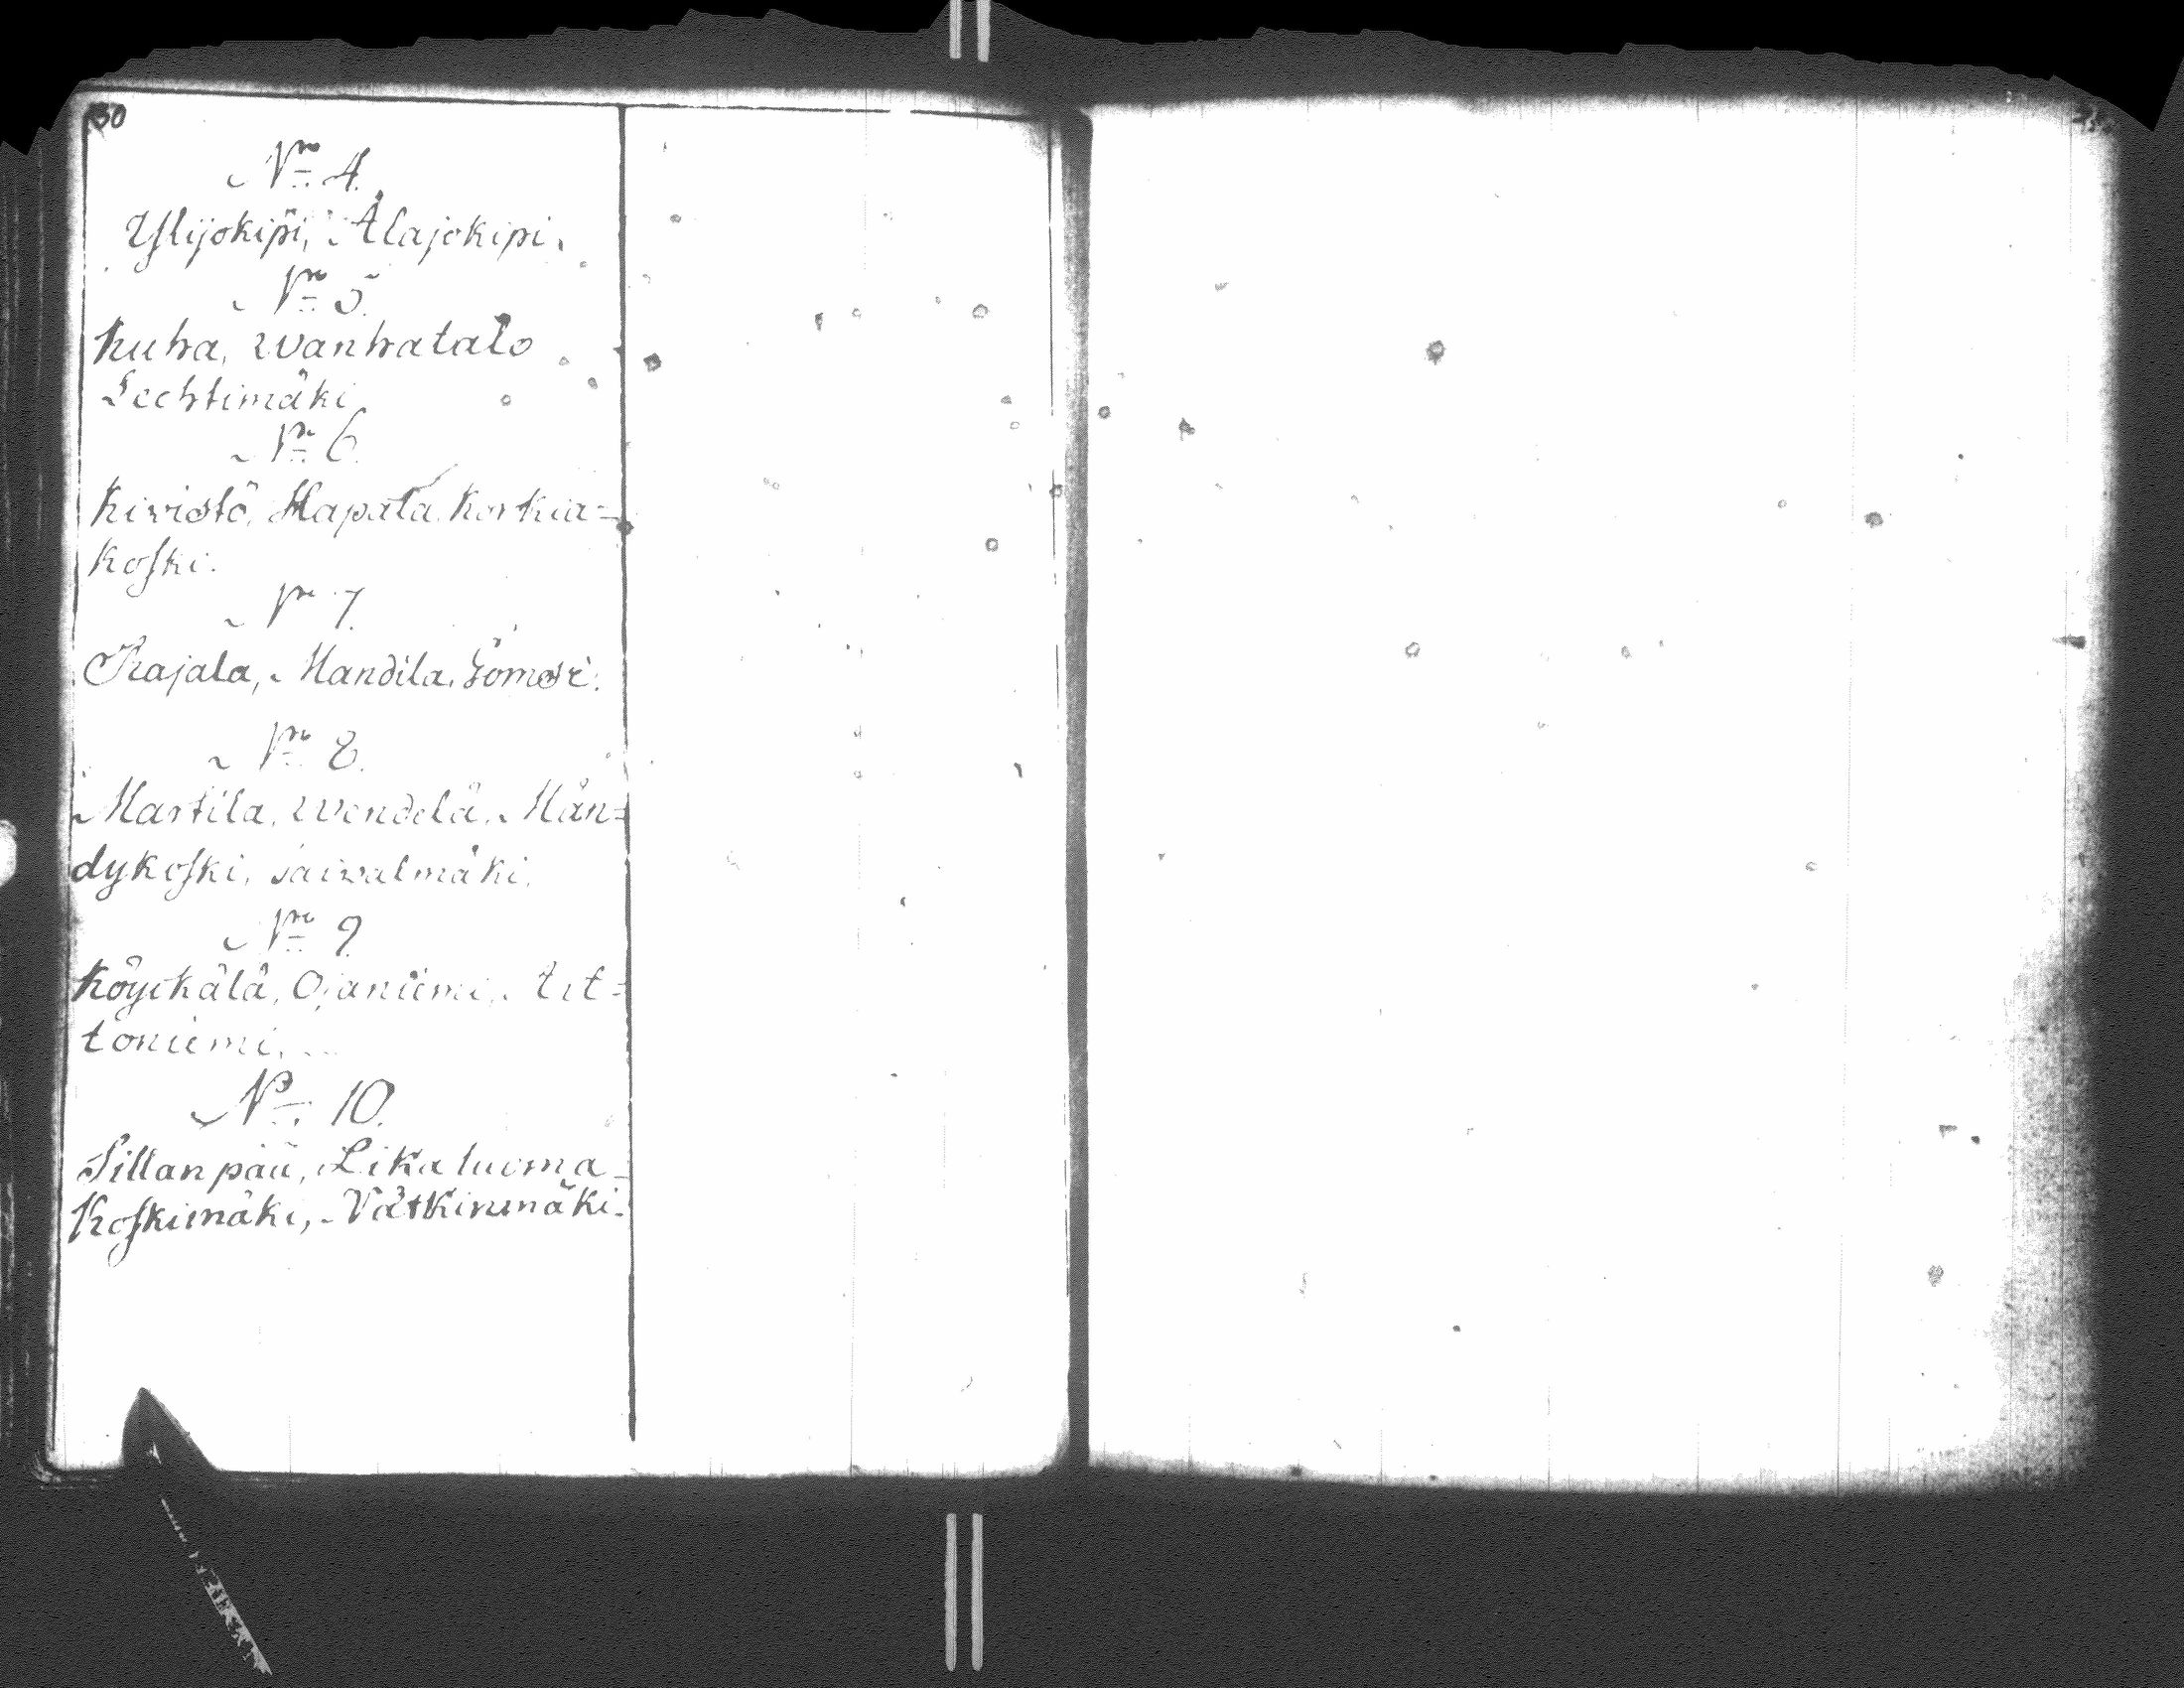 50
Nro 4.
Ylijokipi, Alajokipi.
Nro 5.
Kuha, Wanhatalo
Lechtimäki
Nro 6.
Kivistö, Hapala, Korkia=
koski.
Nro 7.
Rajala, Mandila, Gömosi.
Nro 8.
Martila, Wendelä, Män=
dykoski, saiwalmäki.
Nro 9.
Köyckälä, Ojaniemi,
toniemi,
Nro 10.
Sillanpää, Likaluoma
Koskimäki, Vätkinmäki.